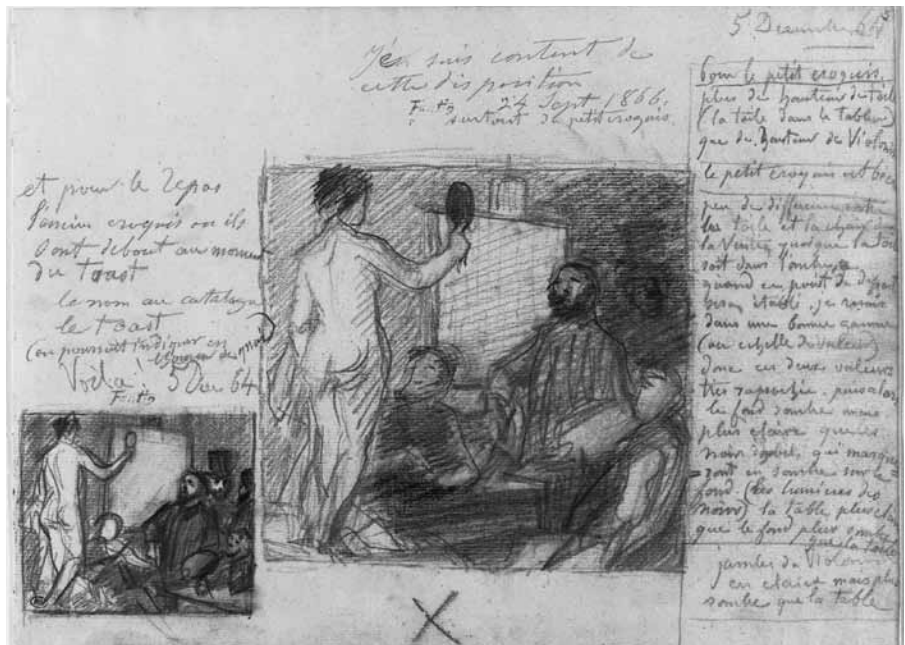 5 Decembre 64
J'en suis content de
cette disposition
F. tis 24 Sept 1866.
surtout du petit croquis.
et pour le Repas
l'ancien croquis ou ils
sont debout au moment
du Toast
le nom au catalogue
le toast
(on pourrait indiquer en
l'honneur de quoi)
Voilà! 5 Dec 64
F. tis
Pour le petit croquis.
plus de hauteur de toile
(la toile dans le tableau)
que de hauteur de Violon
le petit croquis est bon
peu de difference entre
la toile et la chair de
la Verité, quoique la toile
soit dans l'ombre
quand ce point de départ
bien établi, je serais
dans une bonne gamme
(ou echelle de valeurs)
donc ces deux valeurs
très raprochées, puis alors
le fond sombre mais
plus claire que les
noirs habits, qui marque-
ront en sombre sur le
fond. (les lumieres des
noirs) la table plus claire
que le fond plus sombre
que la toile
jambes du Violon
en claire mais plus
sombre que la table